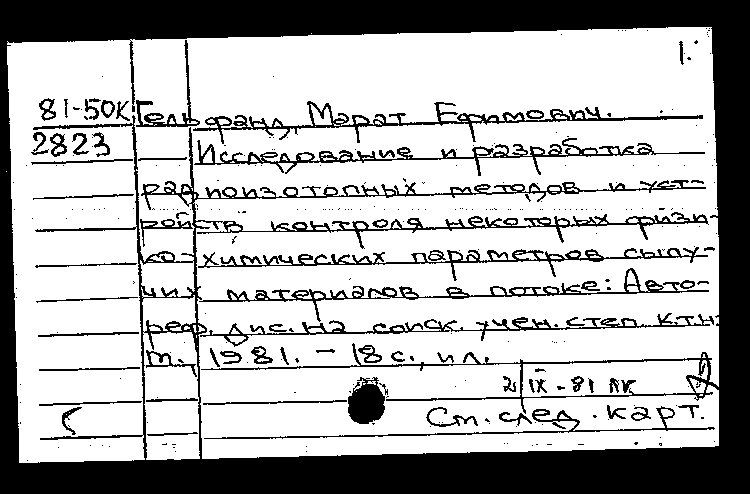 1.
81-50К Гельфанд, Марат Ефимович.
2823 Исследование и разработка
радиоизотопных методов и уст-
ройств контроля некоторых физи-
ко-химических параметров сыпу-
чих материалов в потоке: Авто-
реф. дис. на соиск. учен. степ. к.т.н.
1981. - 18 с., ил.
2/IX-81 ЛК
См. след. карт.